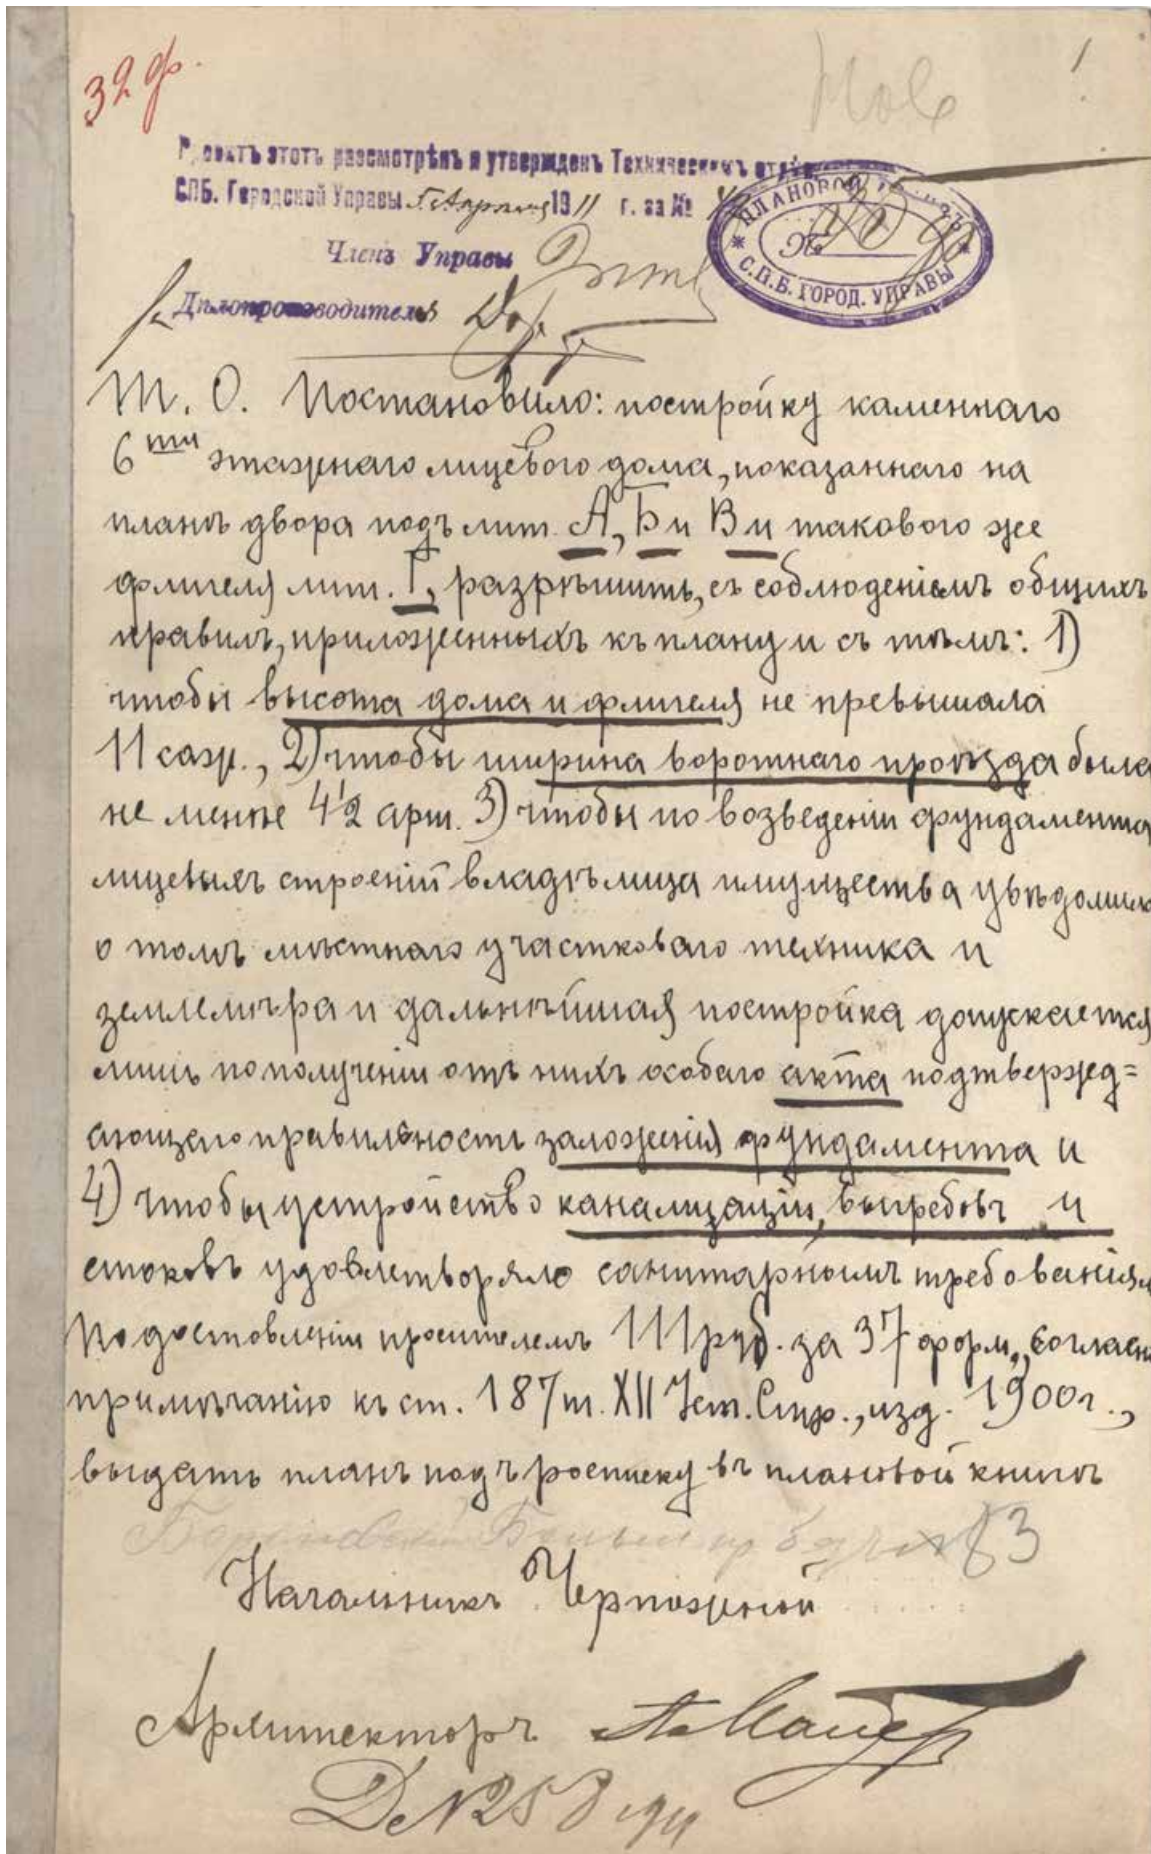 32 ф.
1
Проектъ этотъ разсмотрѣнъ и утвержденъ Техническимъ отдѣ
СПБ. Городской Управы 5 Апрѣля 1911 г. за №
ПЛАНОВОЙ
№
С.П.Б. ГОРОД. УПРАВЫ
Членъ Управы
Дѣлопроизводитель
Т. О. Постановило: постройку каменнаго
6ти этажнаго лицевого дома, показаннаго на
планѣ двора подъ лит. А, Б и В и такового же
флигеля лит. Г, разрѣшить, съ соблюденіемъ общихъ
правилъ, приложенныхъ къ плану и съ тѣмъ: 1)
чтобы высота дома и флигеля не превышала
11 саж., 2) чтобы ширина воротнаго проѣзда была
не менѣе 4 1/2 арш. 3) чтобы по возведеніи фундамента
лицевыхъ строеній владѣлица имущества увѣдомила
о томъ мѣстнаго участковаго техника и
землемѣра и дальнѣйшая постройка допускается
лишь по полученіи отъ нихъ особаго акта подтвержд=
ающаго правильность заложенія фундамента и
4) чтобы устройство канализаціи, выгребовъ и
стоковъ удовлетворяло санитарнымъ требованіям
По доставленіи просителемъ 111 руб. за 37 форм., согласн
примѣчанію къ ст. 187 т. XII Уст. Стр., изд. 1900 г.,
выдать планъ подъ росписку въ плановой книгѣ
83
Начальникъ Чертежной
Архитекторъ
Д. № 258 1911